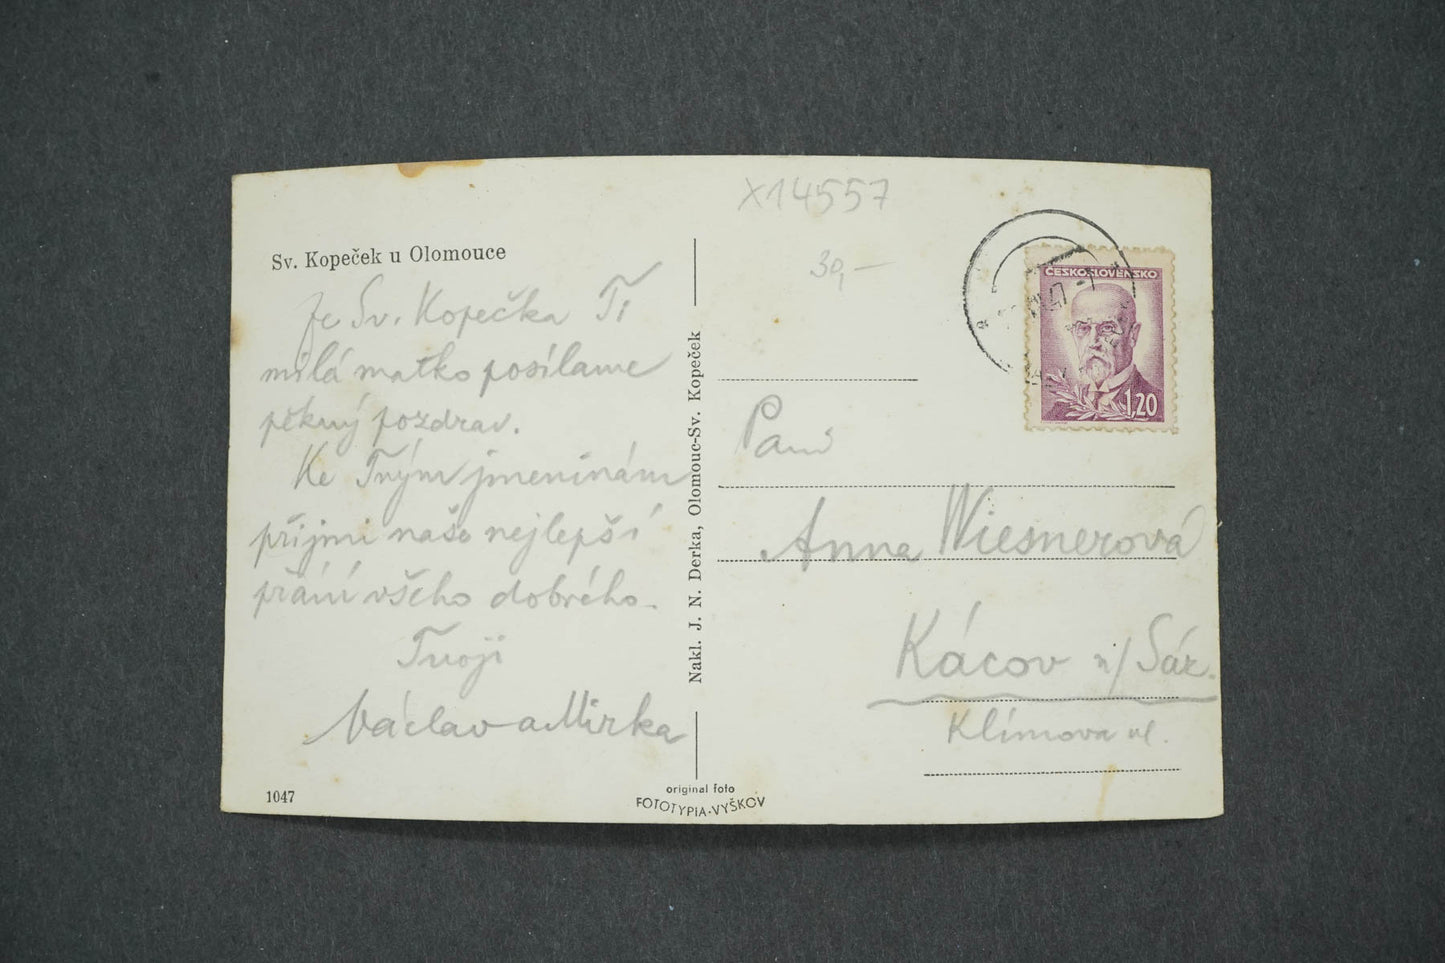 X14557
30,-
Sv. Kopeček u Olomouce
Ze Sv. Kopečka Ti
milá matko posílame
pěkný pozdrav.
Ke Tvým jmeninám
přijmi naše nejlepší
přání všeho dobrého.
Tvoji
Václav a Mirka
1047
Nakl. J. N. Derka, Olomouc-Sv. Kopeček
original foto
FOTOTYPIA-VYŠKOV
ČESKOSLOVENSKO
1,20
Paní
Anna Wiesnerová
Kácov n/Sáz.
Klímova ul.